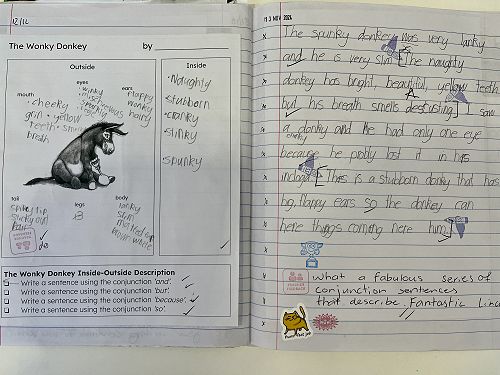 12/12
The Wonky Donkey by
Outside
Inside
eyes
• winky
• mischievous
• sparkly
ears
floppy
wonky
hairy
mouth
• cheeky
grin • yellow
teeth • smiling
breath
• Naughty
• stubborn
• cranky
• stinky
• spunky
tail
spikey tip
sticky out
legs
3
body
lanky
slim
The Wonky Donkey Inside-Outside Description
Write a sentence using the conjunction 'and'.
Write a sentence using the conjunction 'but'.
Write a sentence using the conjunction 'because'.
Write a sentence using the conjunction 'so'.
13 NOV 2024
The spunky donkey was very lanky
and he is very slim. The naughty
donkey has bright, beautiful, yellow teeth
but his breath smells
I saw
a cheeky donkey and he had only one eye
because he probly lost it in his
This is a stubborn donky that has
big, flappy ears so the donkey can
here things coming here him.
what a fabulous series of
conjunction sentences
that describe. Fantastic